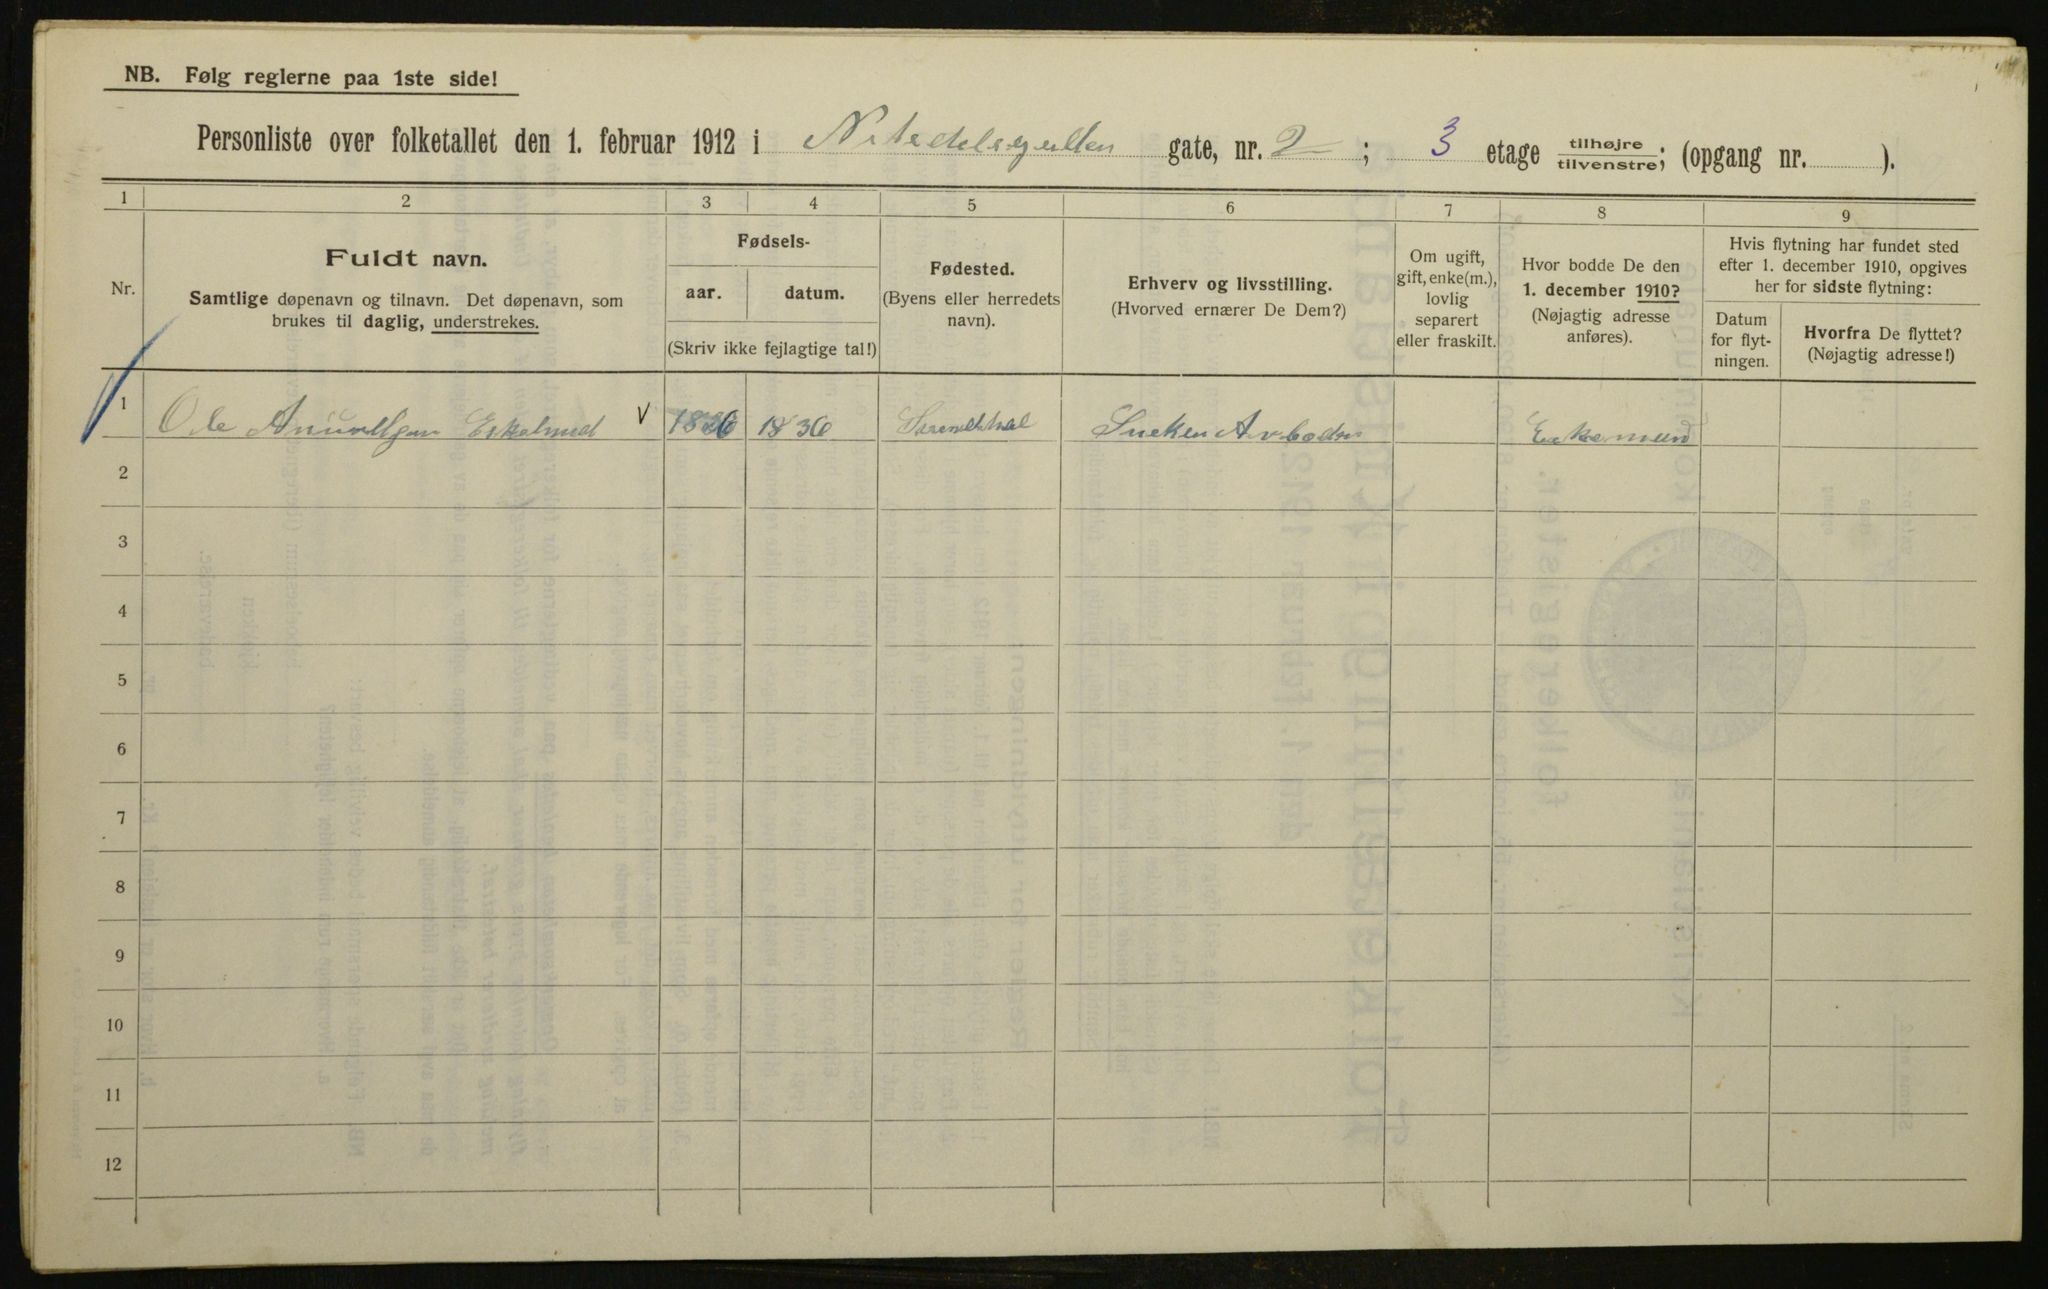 NB. Følg reglerne paa 1ste side!
Personliste over folketallet den 1. februar 1912 i Nitedalsgullen gate, nr. 2; 3 etage tilhøjre tilvenstre; (opgang nr. ).
1 2 3 4 5 6 7 8 9
Nr.
Fuldt navn.
Samtlige døpenavn og tilnavn. Det døpenavn, som
brukes til daglig, understrekes.
Fødsels-
aar. datum.
(Skriv ikke fejlagtige tal!)
Fødested.
(Byens eller herredets
navn).
Erhverv og livsstilling.
(Hvorved ernærer De Dem?)
Om ugift,
gift, enke(m.),
lovlig
separert
eller fraskilt.
Hvor bodde De den
1. december 1910?
(Nøjagtig adresse
anføres).
Hvis flytning har fundet sted
efter 1. december 1910, opgives
her for sidste flytning:
Datum
for flyt-
ningen.
Hvorfra De flyttet?
(Nøjagtig adresse!)
1 Ole 1836
2
3
4
5
6
7
8
9
10
11
12